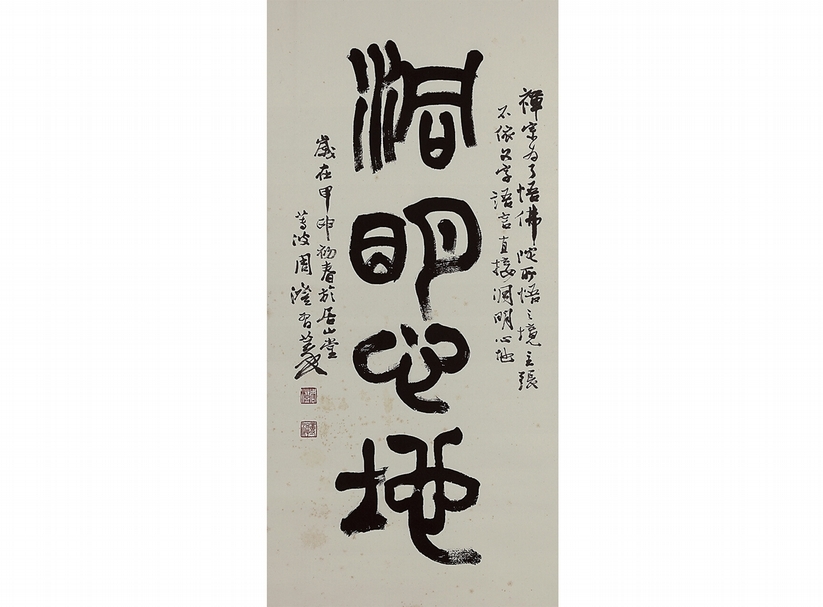 禪宗為了悟佛陀所悟之境主張
不依文字語言直接洞明心地
洞明心地
歲在甲申初春於居山堂
蓴波周澄習篆